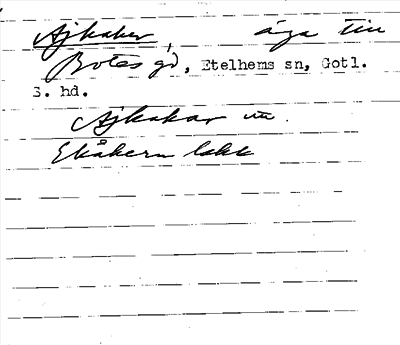 Ajkaker äga till
Botes gd, Etelhems sn, Gotl.
S. hd.
Ajkakar m.
Ekåkern lskk